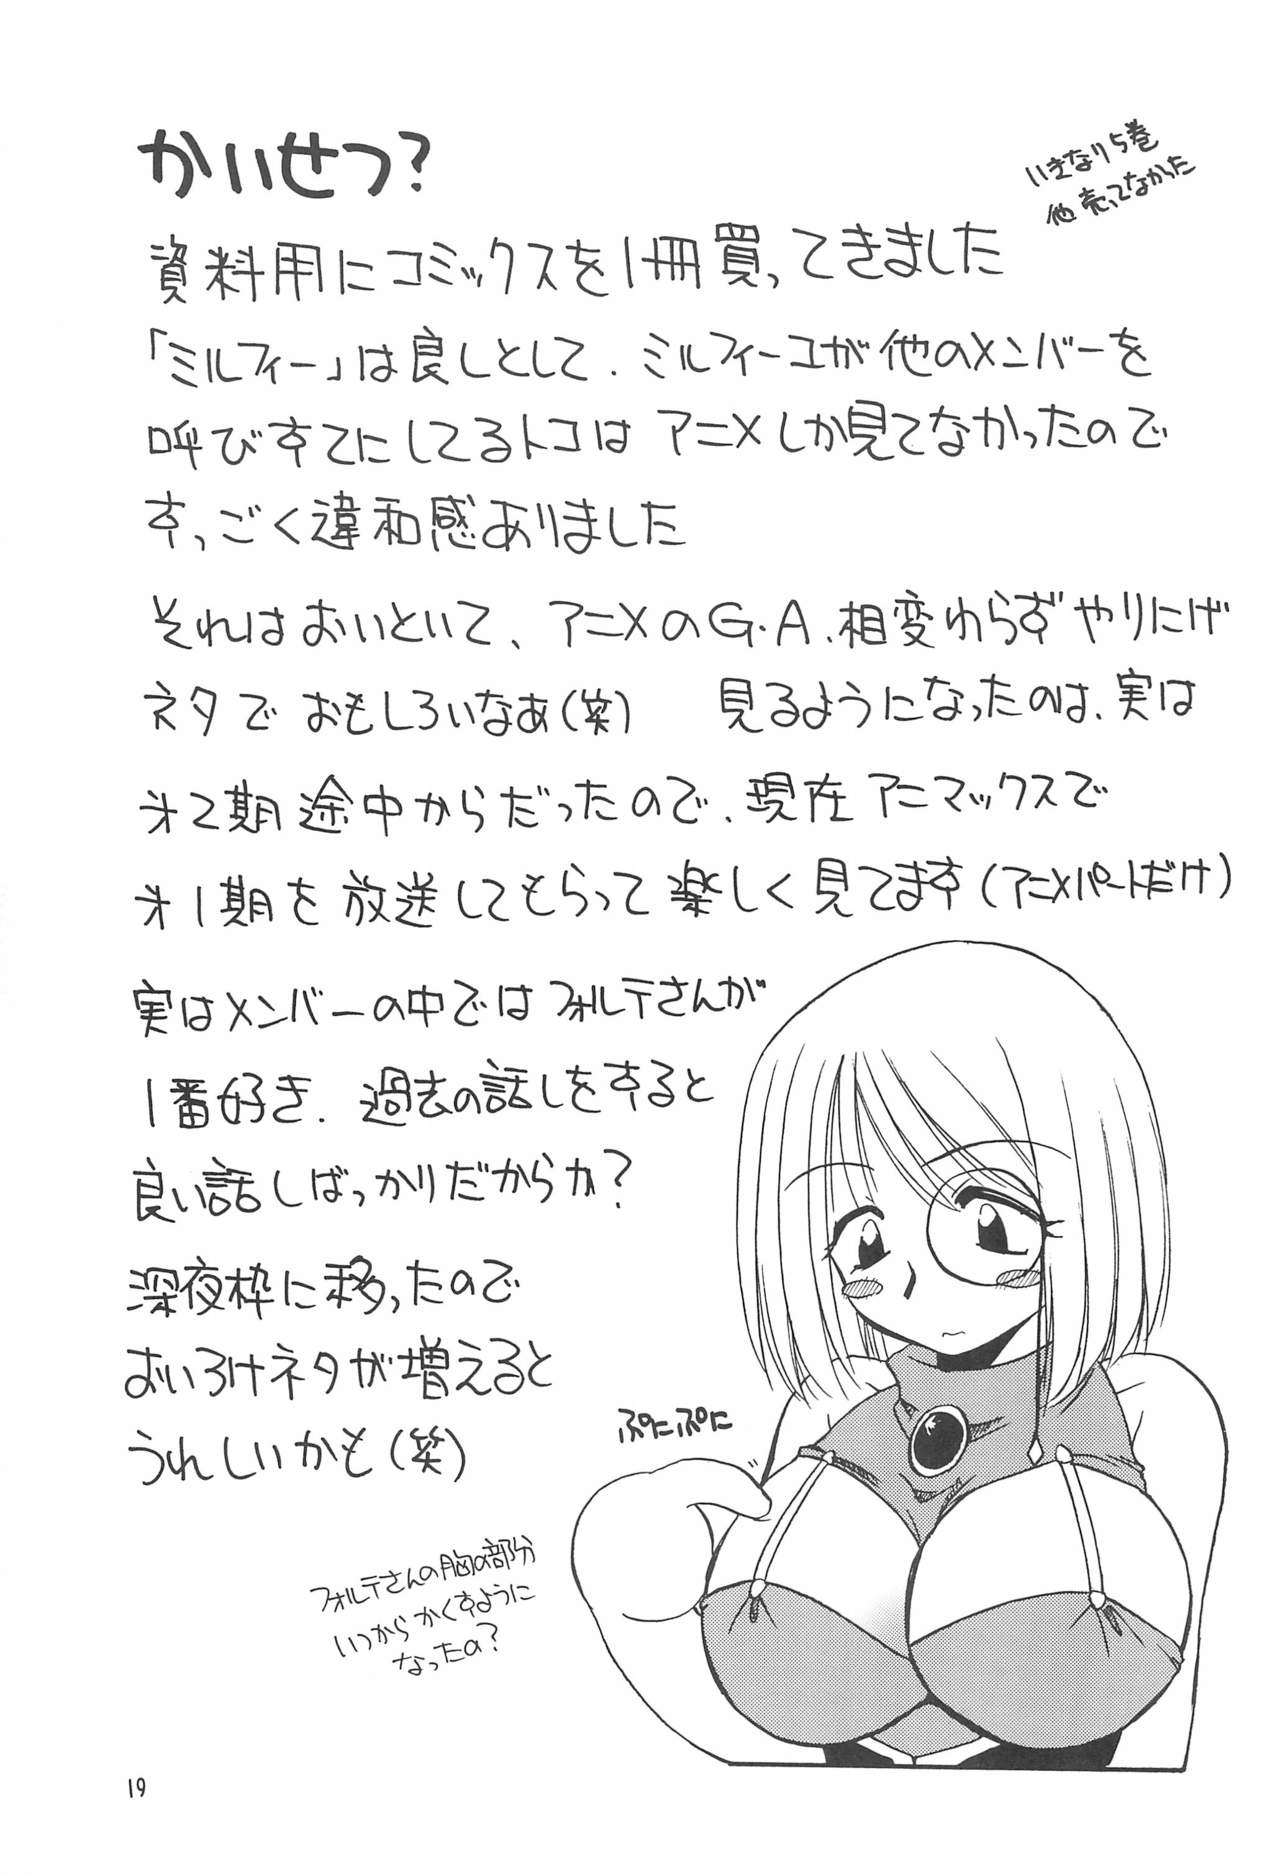 かいせつ?
いきなり5巻
他売ってなかった
資料用にコミックスを1冊買ってきました
「ミルフィー」は良しとして、ミルフィーユが他のメンバーを
呼びすてにしてるトコはアニメしか見てなかったので
すっごく違和感ありました
それはおいといて、アニメのG.A.相変わらずやりにげ
ネタでおもしろいなあ(笑) 見るようになったのは、実は
才2期途中からだったので、現在アニマックスで
才1期を放送してもらって楽しく見てます(アニメパートだけ)
実はメンバーの中ではフォルテさんが
1番好き、過去の話しをすると
良い話しばっかりだからカ?
深夜枠に移ったので
おいろけネタが増えると
うれしいかも(笑)
ぷにぷに
フォルテさんの胸の部分
いつからかくすように
なったの?
19